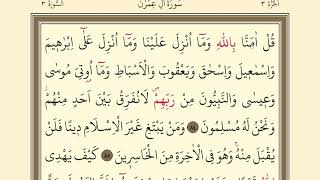 الجزء ٣ سورة آل عمران السورة ٣
قُلْ اٰمَنَّا بِاللّٰهِ وَمَٓا اُنْزِلَ عَلَيْنَا وَمَٓا اُنْزِلَ عَلٰٓى اِبْرٰهِيمَ
وَاِسْمٰعِيلَ وَاِسْحٰقَ وَيَعْقُوبَ وَالْاَسْبَاطِ وَمَٓا اُو۫تِيَ مُوسٰى
وَعِيسٰى وَالنَّبِيُّونَ مِنْ رَبِّهِمْۖ لَانُفَرِّقُ بَيْنَ اَحَدٍ مِنْهُمْۘ
وَنَحْنُ لَهُ مُسْلِمُونَ ﴿٨٤﴾ وَمَنْ يَبْتَغِ غَيْرَ الْاِسْلَامِ دِينًا فَلَنْ
يُقْبَلَ مِنْهُۚ وَهُوَ فِي الْاٰخِرَةِ مِنَ الْخَاسِرِينَ ﴿٨٥﴾ كَيْفَ يَهْدِي